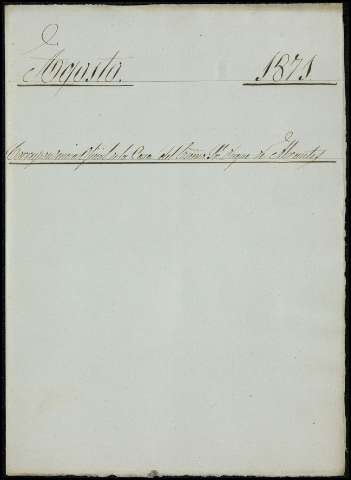 Agosto. 1871
Correspondencia Oficial de la Casa del Excmo. Sr. Duque de Abrantes